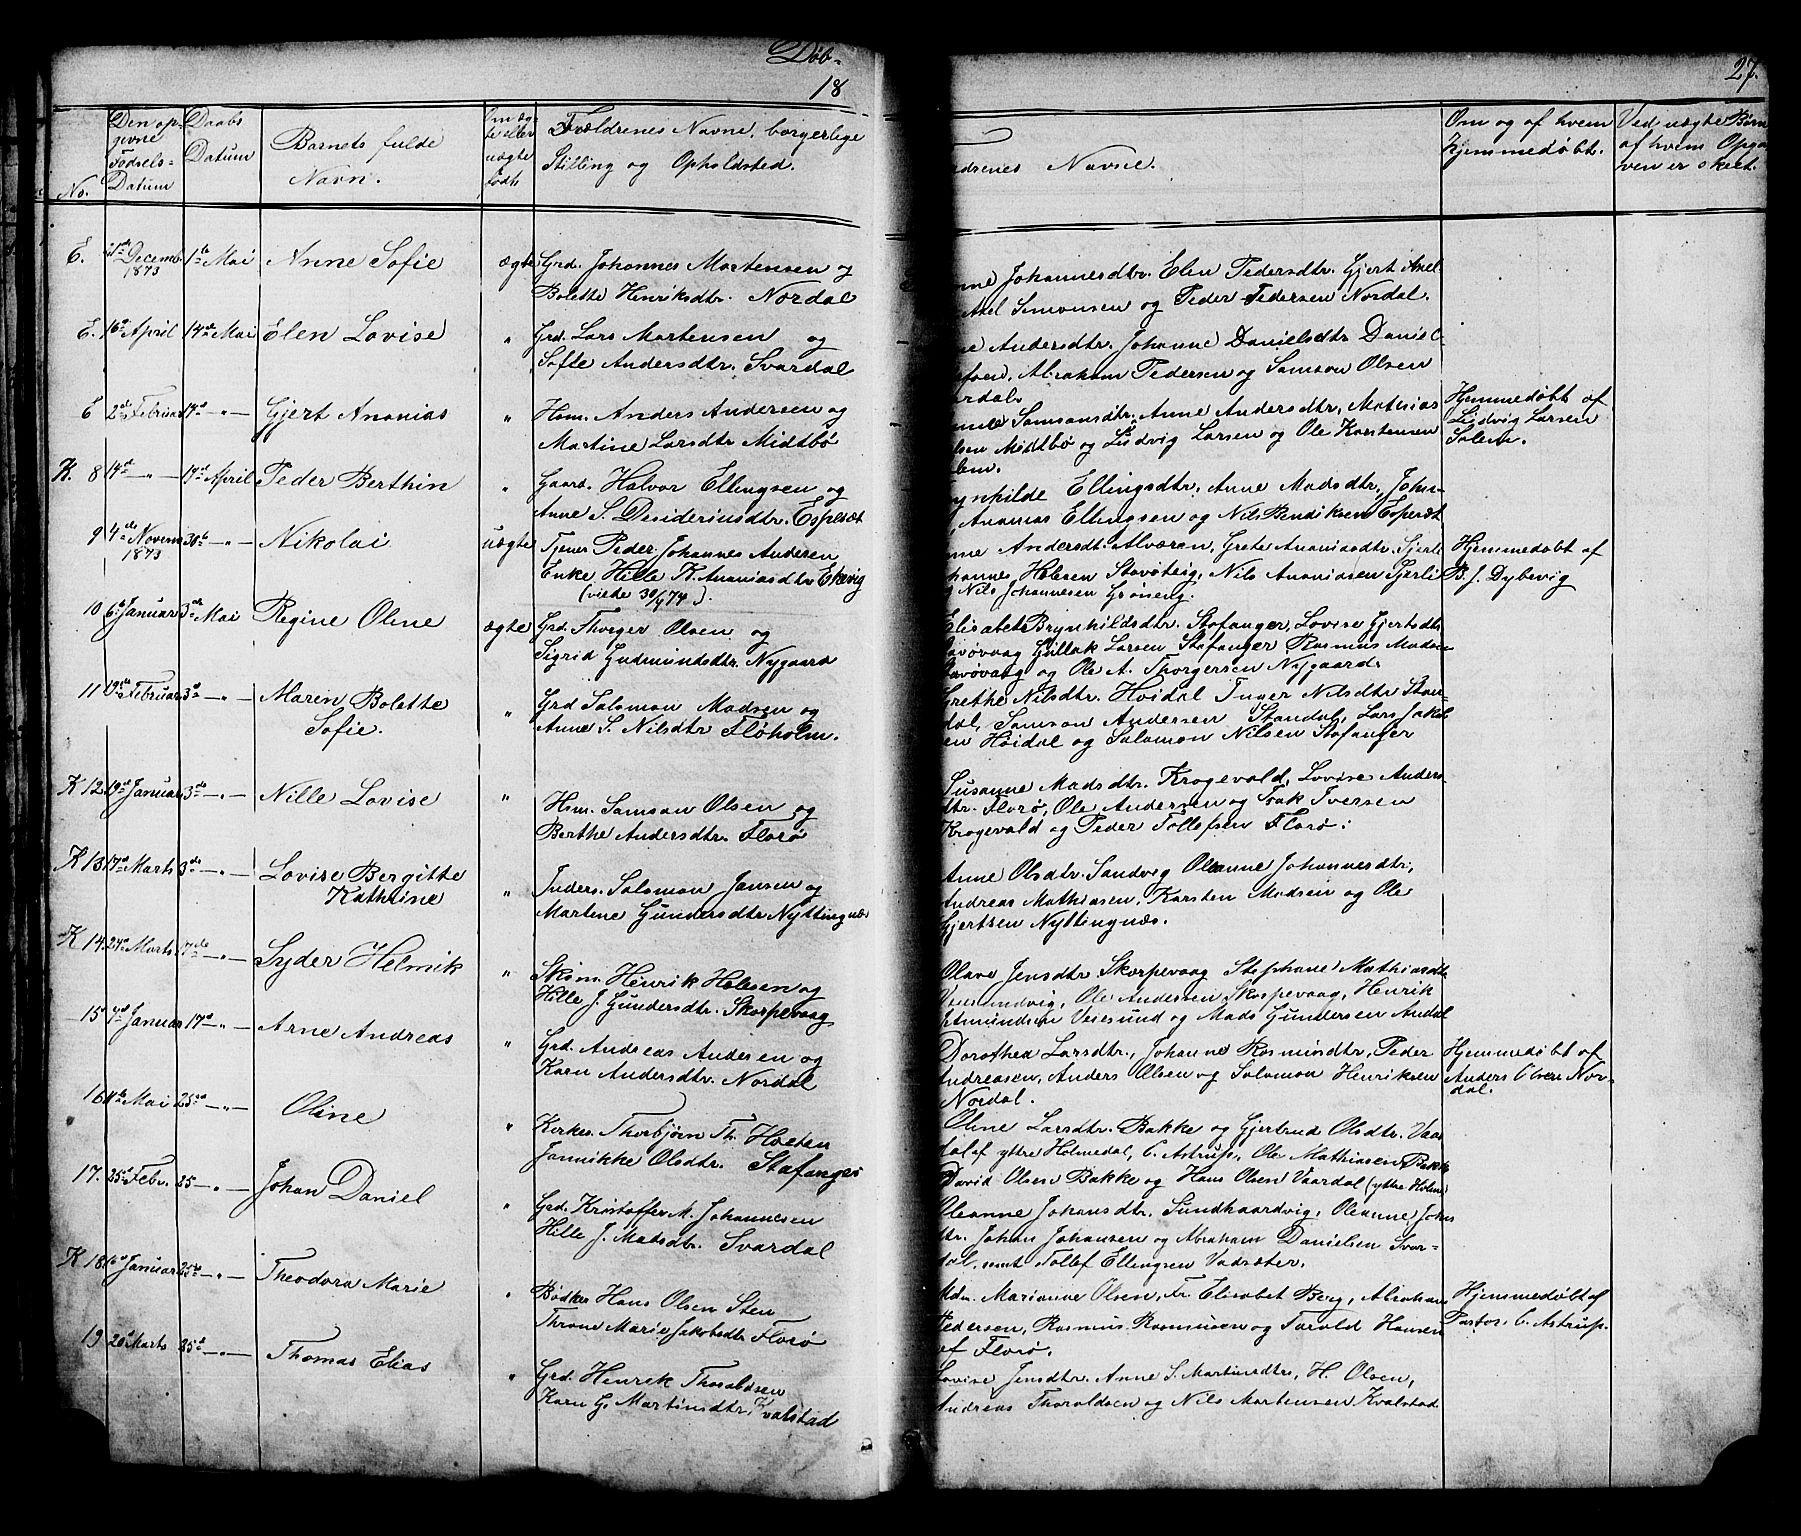 Døb-
18
27.
No.
Den op-
givne
Fødsels-
Datum
Daabs
Datum
Barnets fulde
Navn.
Om æg-
te eller
uægte
født.
Forældrenes Navne, borgerlige
Stilling og Opholdsted.
Navne.
Om og af hvem
hjemmedøbt.
Ved uægte Børn
af hvem Opga-
ven er skeet.
E. 1ste Decemb. 1873 1ste Mai Anne Sofie ægte Grd. Johannes Martensen og
Bolette Henriksdtr. Nordal
Johannesdtr. Elen Pedersdtr. Gjert Axel
Axel Simonsen og Peder Pedersen Nordal.
E. 16de April 14de Mai Elen Lovise " Grd. Lars Martensen og
Sofie Andersdtr. Svardal
Andersdtr. Johanne Danielsdtr. Daniel
Abraham Pedersen og Samson Olsen
E 2den Februar 14de -"- Gjert Ananias " Hsm. Anders Andersen og
Martine Larsdtr. Midtbø
Samsonsdtr. Anne Andersdtr, Mathias
Midtbø og Ludvig Larsen og Ole Karstensen
Hjemmedøbt af
Ludvig Larsen
Solem.
K. 8 14de -"- 19de April Peder Berthin " Gaard. Halvor Ellingsen og
Anne S. Desideriusdtr. Espesæt
Ellingsdtr, Anne Madsdtr, Johan-
Ananias Ellingsen og Nils Bendiksen Espesæt
9 4de Novemb 1873 30te -"- Nikolai uægte Tjener Peder Johannes Andersen
Enke Hille K. Ananiasdtr. Ekevig
(viede 30/4 74).
Andersdt. Alværen, Grete Ananiasdtr. Sjerli
Helesen Stavøteig, Nils Ananiasen Sjerli
og Nils Johannesen Grøneng.
Hjemmedøbt af
B. J. Dybevig
10 6te Januar 3de Mai Regine Oline ægte Grd. Thorger Olsen og
Sigrid Gudmundsdtr. Nygaard
Elisabet Brynhildsdtr. Stafanger, Lovise Gjertsdtr
Gullak Larsen Stafanger Rasmus Madsen
og Ole A. Thorgersen Nygaard.
11 19de Februar 3de -"- Maren Bolette
Sofie.
" Grd Salomon Madsen og
Anne S. Nilsdtr Fløholm.
Grethe Nilsdtr. Høidal Inger Nilsdtr Stan-
dal, Samson Andersen Standal, Lars Jakob
en Høidal og Salomon Nilsen Stafanger
K 12 19de Januar 3de -"- Nille Lovise " Hsm. Samson Olsen og
Berthe Andersdtr. Florø
Susanne Madsdtr. Krogevald, Lovise Anders-
dtr. Florø, Ole Andersen og Isak Iversen
Krogevald og Peder Tollefsen Florø.
K 13 17de Marts 3de -"- Lovise Bergitte
Kathrine
" Inders. Salomon Jansen og
Martene Gundersdtr Nyttingnæs
Anne Olsdtr. Sandvig Oleanne Johannesdtr,
Andreas Mathiasen, Karsten Madsen og Ole
Gjertsen Nyttingnæs.
K 14. 24de Marts 17de -"- Syder Helmik " Skøm. Henrik Helesen og
Hille J. Gundersdtr. Skorpevaag
Olave Jensdtr. Skorpevaag Stephane Mathiasdtr
Veiesundvig, Ole Andersen Skorpevaag, Henrik
Veiesund og Mads Gundersen Andal
15 7de Januar 17de -"- Arne Andreas " Grd. Andreas Andersen og
Karn Andersdtr. Nordal
Dorothea Larsdtr., Johanne Rasmusdtr, Peder
Andreasen, Anders Olsen og Salomon Henriksen
Nordal.
Hjemmedøbt af
Anders Olsen Nor-
dal.
16 11te Mai 25de -"- Oline " Kirkes. Thorbjørn Th. Hveten
Jannikke Olsdtr. Stafanger
Oline Larsdtr. Bakke og Gjertrud Olsdtr. Vaar
dal af yttre Holmedal, C. Astrup, Ole Mathiasen Bakke
David Olsen Bakke og Hans Olsen Vaardal (yttre Holme
17. 25de Febr. 25 -"- Johan Daniel " Grd. Kristoffer M. Johannesen
Hille J. Madsdtr. Svardal
Oleanne Johansdtr. Sundhaardvig, Oleanne Johs
dtr. Johan Johansen og Abraham Danielsen Svar-
dal, samt Tollef Ellingsen Vadsæter.
K 18 16de Januar 25de -"- Theodora Marie " Bødker Hans Olsen Sten
Throne Marie Jakobsdtr Florø
Mdm. Marianne Olsen, Fr. Elisabet Berg, Abraham
Pedersen, Rasmus Rasmussen og Tarald Hansen
af Florø.
Hjemmedøbt af
Pastor C. Astrup.
19 20de Marts 25de -"- Thomas Elias " Grd. Henrik Thoraldsen
Karn G. Martinsdtr. Kvalstad
Lovise Jensdtr. Anne S. Martinsdtr, H. Olsen,
Andreas Thoraldsen og Nils Martensen Kvalstad